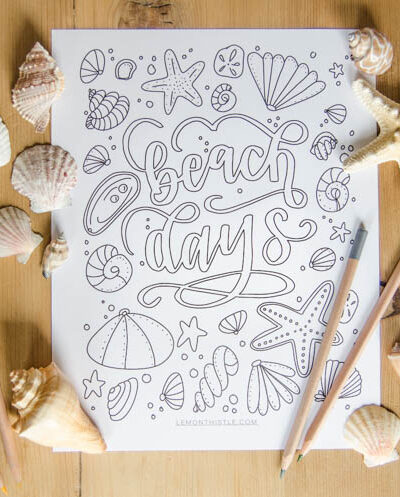 beach
days
LEMONTHISTLE.COM